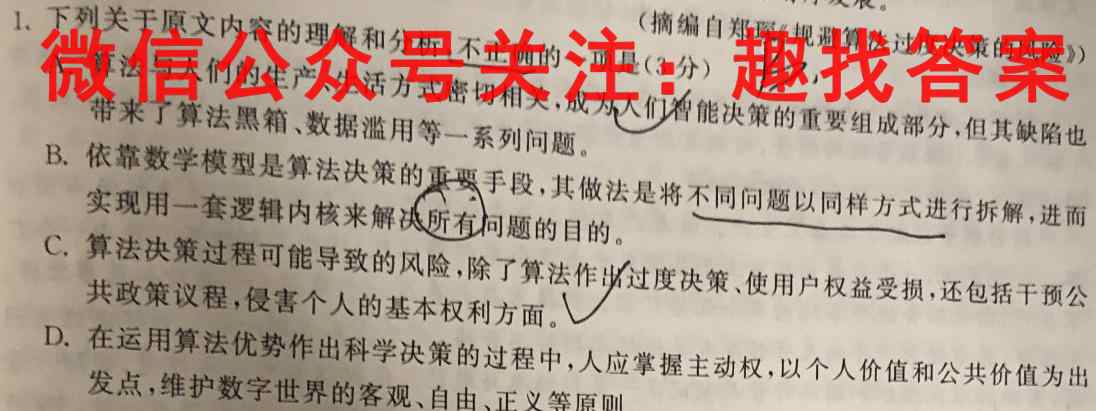 序发展。
(摘编自郑琛《规避算法过度决策的风险》)
1. 下列关于原文内容的理解和分析,不正确的一项是(3分)
微信公众号关注:趣找答案
A. 算法与人们的生产、生活方式密切相关,成为人们智能决策的重要组成部分,但其缺陷也
带来了算法黑箱、数据滥用等一系列问题。
B. 依靠数学模型是算法决策的重要手段,其做法是将不同问题以同样方式进行拆解,进而
实现用一套逻辑内核来解决所有问题的目的。
C. 算法决策过程可能导致的风险,除了算法作出过度决策、使用户权益受损,还包括干预公
共政策议程,侵害个人的基本权利方面。
D. 在运用算法优势作出科学决策的过程中,人应掌握主动权,以个人价值和公共价值为出
发点,维护数字世界的客观、自由、正义等原则